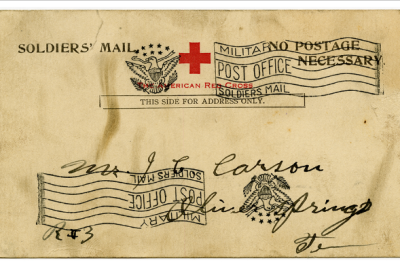 SOLDIERS' MAIL
NO POSTAGE
NECESSARY
MILITARY
POST OFFICE
SOLDIERS MAIL
The American Red Cross
THIS SIDE FOR ADDRESS ONLY.
Mr J C Carson
MILITARY
POST OFFICE
SOLDIERS MAIL
Springs
R#3
Ten